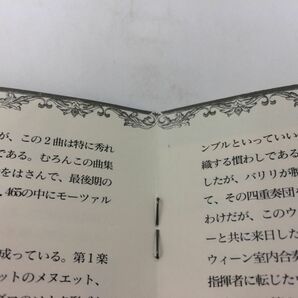 が、この2曲は特に秀れ
である。むろんこの曲集
をはさんで、最後期の
.465の中にモーツァル
成っている。第1楽
ットのメヌエット、
ンブルといっていい
織する慣わしである
したが、バリリが
て、その四重奏団
わけだが、このウィ
ーと共に来日した
ウィーン室内合奏
指揮者に転じた